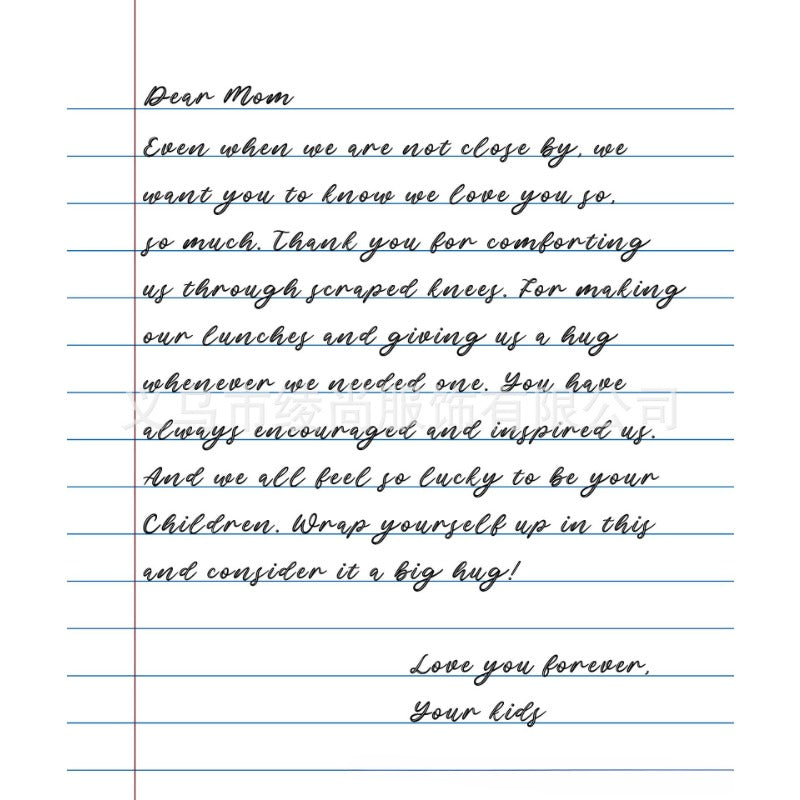 Dear Mom
Even when we are not close by, we
want you to know we love you so,
so much. Thank you for comforting
us through scraped knees. For making
our lunches and giving us a hug
whenever we needed one. You have
义乌市绫尚服饰有限公司
always encouraged and inspired us.
And we all feel so lucky to be your
Children. Wrap yourself up in this
and consider it a big hug!
Love you forever,
Your kids